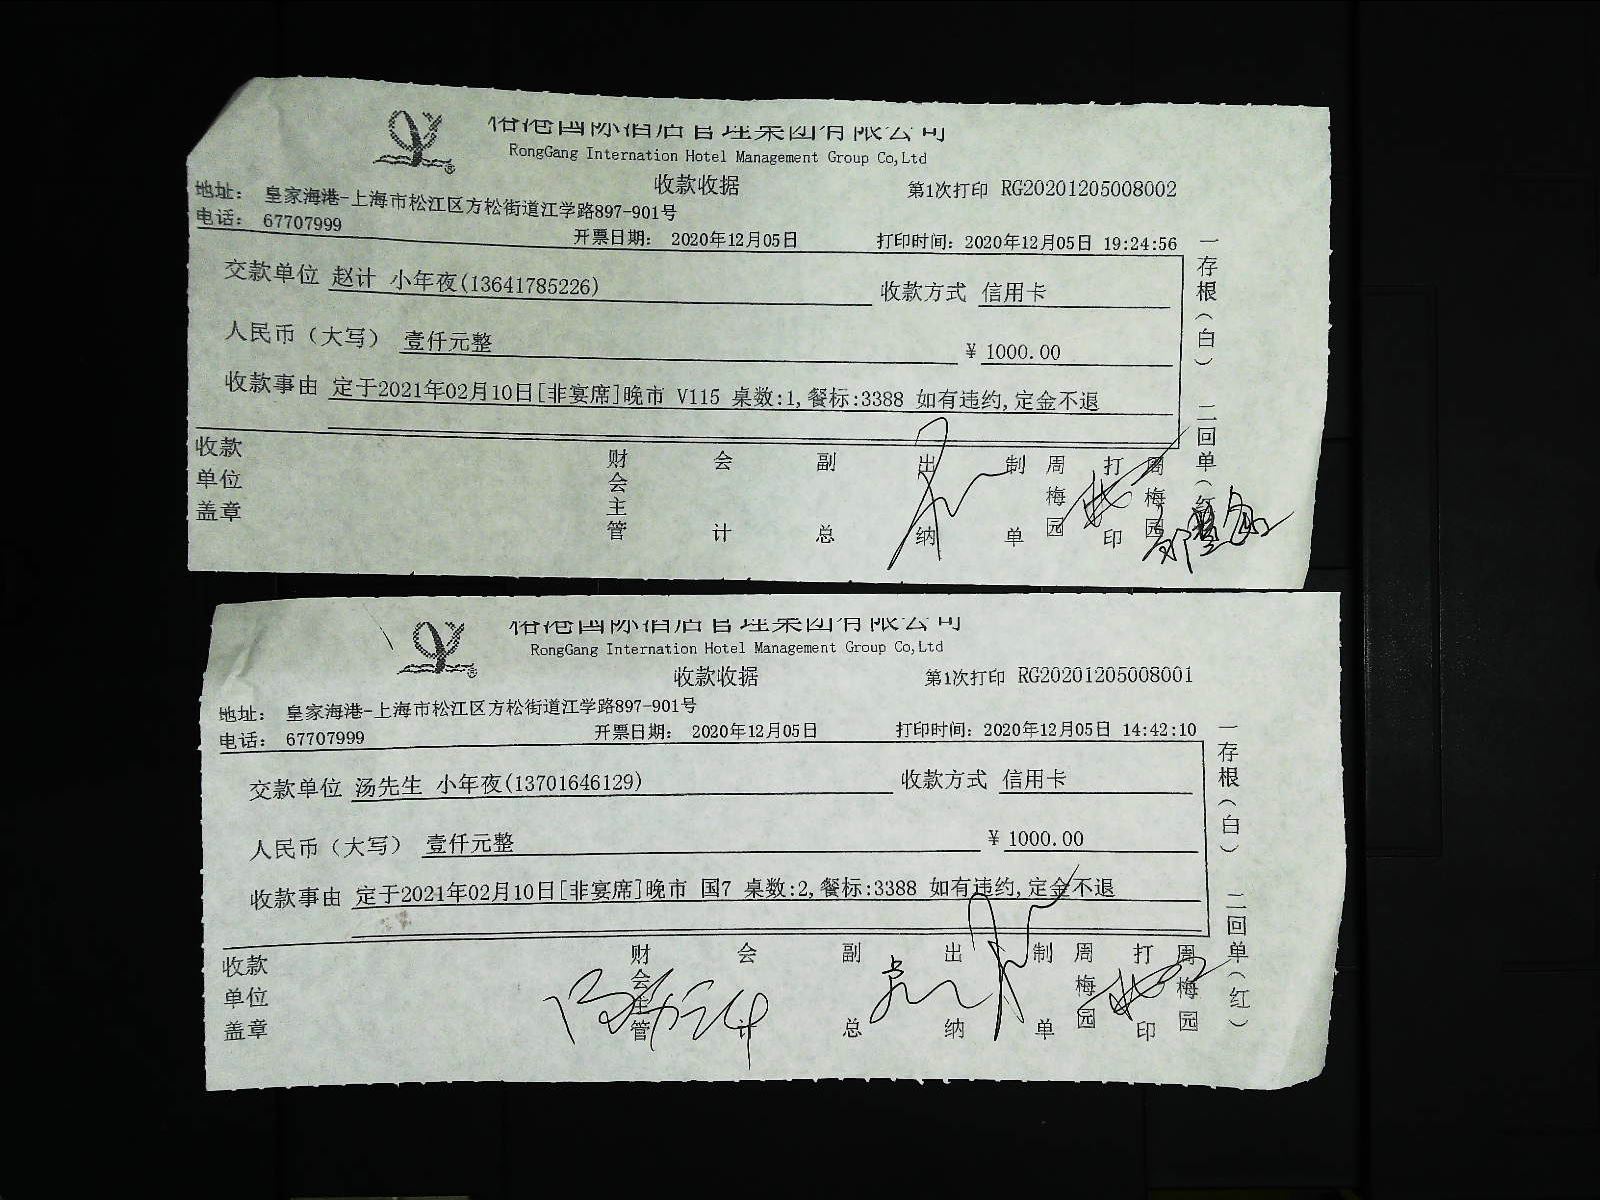 裕港国际酒店管理集团有限公司
RongGang Internation Hotel Management Group Co,Ltd
收款收据
第1次打印 RG20201205008002
地址： 皇家海港-上海市松江区方松街道江学路897-901号
电话： 67707999
开票日期： 2020年12月05日
打印时间：2020年12月05日 19:24:56
交款单位 赵计 小年夜(13641785226)
收款方式 信用卡
人民币（大写） 壹仟元整
￥ 1000.00
收款事由 定于2021年02月10日[非宴席]晚市 V115 桌数:1,餐标:3388 如有违约,定金不退
收款单位盖章
财会主管
会计
副总
出纳
制单
周梅园
打印
周梅园
一存根（白） 二回单（红
裕港国际酒店管理集团有限公司
RongGang Internation Hotel Management Group Co,Ltd
收款收据
第1次打印 RG20201205008001
地址： 皇家海港-上海市松江区方松街道江学路897-901号
电话： 67707999
开票日期： 2020年12月05日
打印时间：2020年12月05日 14:42:10
交款单位 汤先生 小年夜(13701646129)
收款方式 信用卡
人民币（大写） 壹仟元整
￥ 1000.00
收款事由 定于2021年02月10日[非宴席]晚市 国7 桌数:2,餐标:3388 如有违约,定金不退
收款单位盖章
财会主管
会计
副总
出纳
制单
周梅园
打印
周梅园
一存根（白） 二回单（红）